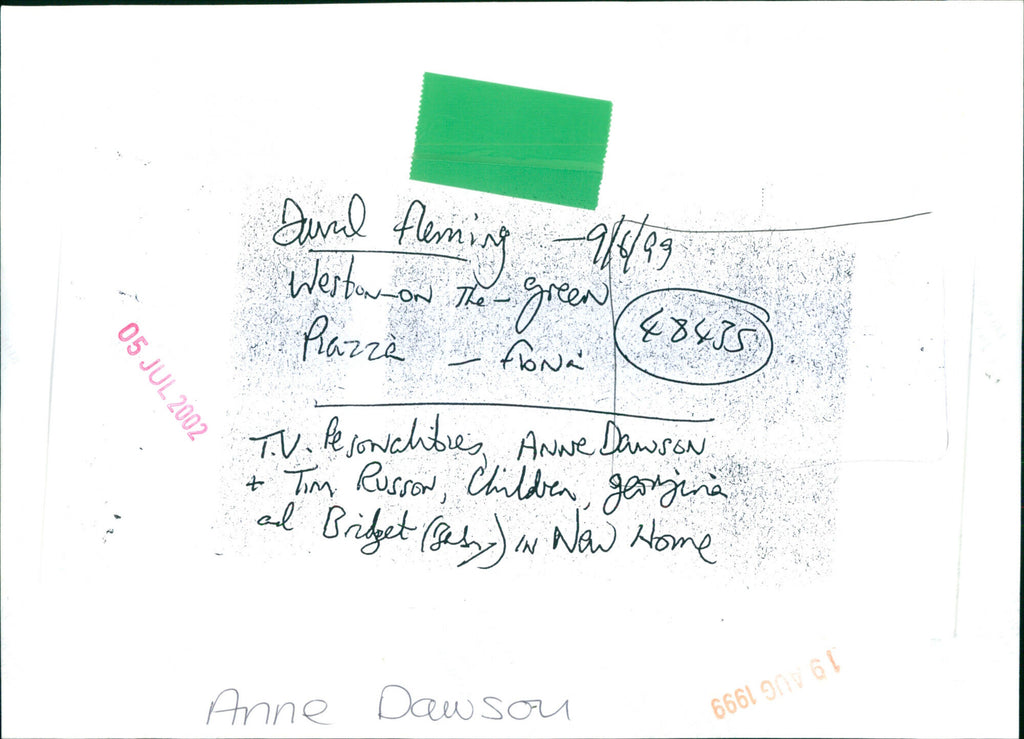 David Fleming — 9/6/99
Weston-on The - Green
Piazza — Fiona
48435
05 JUL 2002
T.V. Pesonalities, Anne Dawson
+ Tim Russon, Children, Georgina
ad Bridget (Baby) in New Home
19 AUG 1999
Anne Dawson